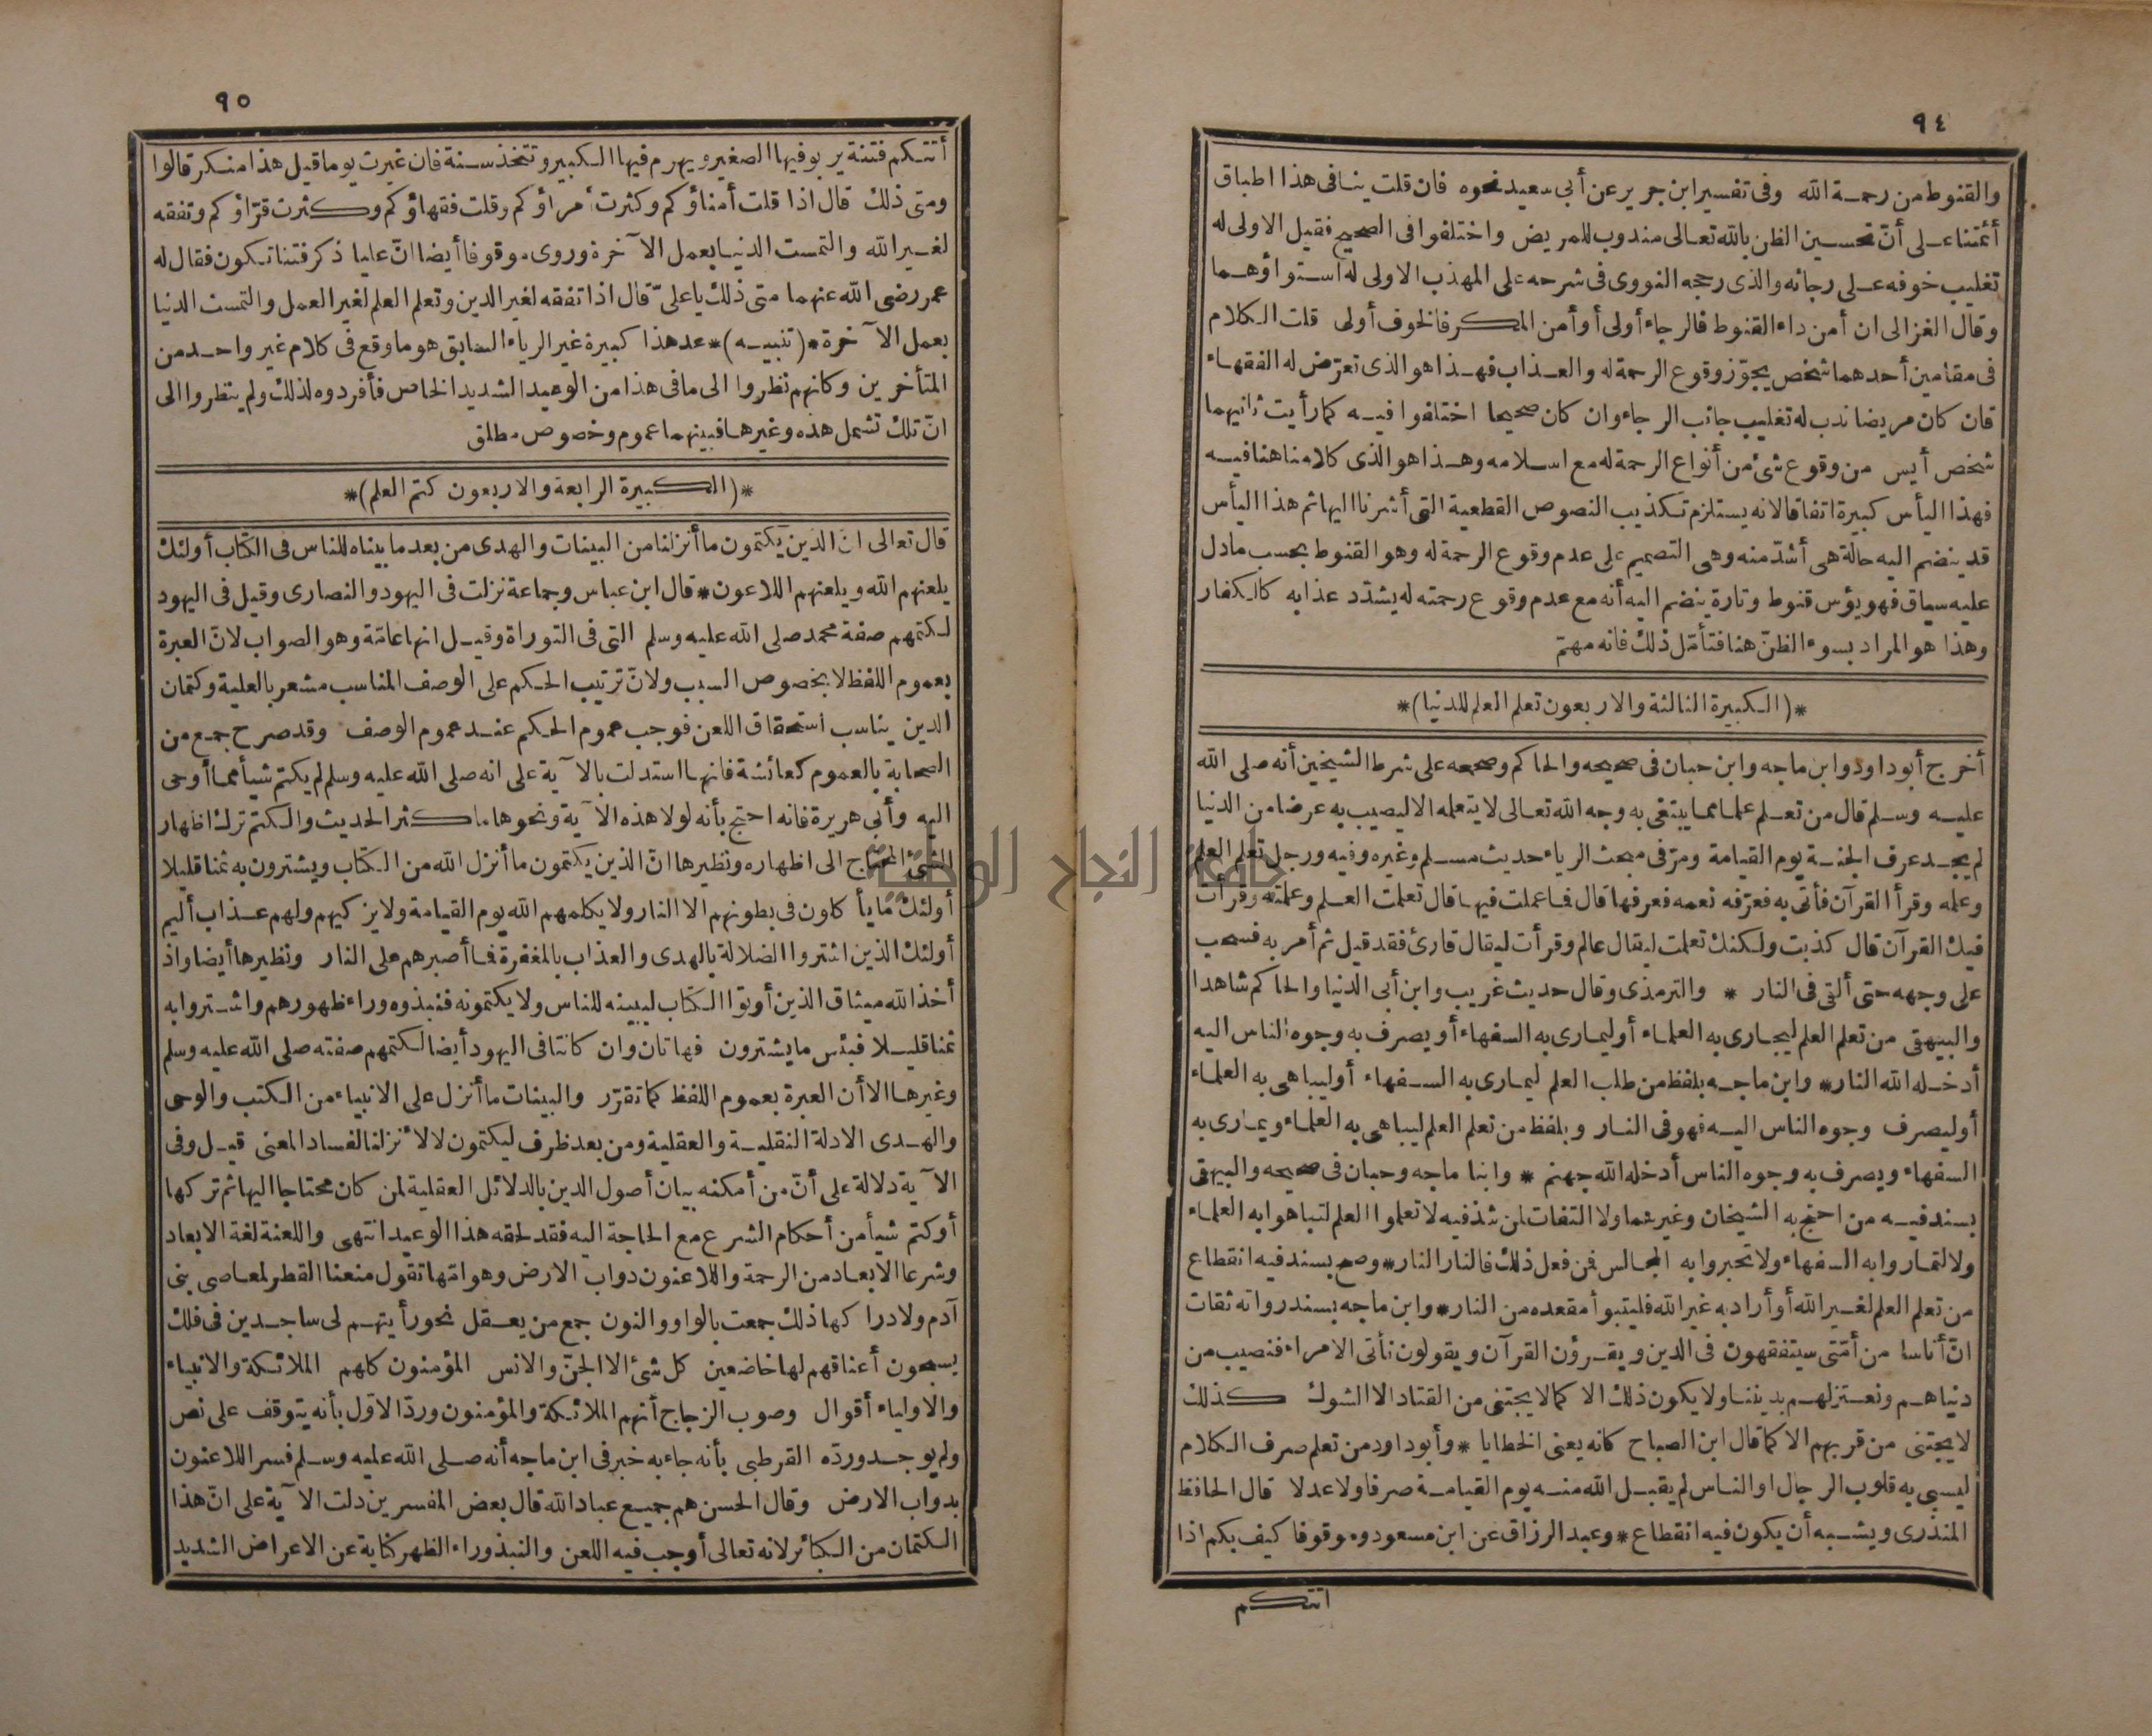 ٩٤
والقنوط من رحمة الله وفى تفسير ابن جرير عن أبى سعيد نحوه فان قلت ينافى هذا اطباق
أئمتنا على أنّ تحسين الظن بالله تعالى مندوب للمريض واختلفوا فى الصحيح فقيل الاولى له
تغليب خوفه على رجائه والذى رجحه النووى فى شرحه على المهذب الاولى له استواؤهما
وقال الغزالى ان أمن داء القنوط فالرجاء أولى أو أمن المكر فالخوف أولى قلت الكلام
فى مقامين أحدهما شخص يجوّز وقوع الرحمة له والعذاب فهذا هو الذى تعرّض له الفقهاء
فان كان مريضا ندب له تغليب جانب الرجاء وان كان صحيحا اختلفوا فيه كما رأيت ثانيهما
شخص أيس من وقوع شئ من أنواع الرحمة له مع اسلامه وهذا هو الذى كلامنا هنا فيه
فهذا اليأس كبيرة اتفاقا لانه يستلزم تكذيب النصوص القطعية التى أشرنا اليها ثم هذا اليأس
قد ينضم اليه حالة هى أشدّ منه وهى التصميم على عدم وقوع الرحمة له وهو القنوط بحسب ما دل
عليه سياق فهو يؤس قنوط وتارة ينضم اليه أنه مع عدم وقوع رحمته له يشدّد عذابه كالكفار
وهذا هو المراد بسوء الظنّ هنا فتأمّل ذلك فانه مهتم
*(الكبيرة الثالثة والاربعون تعلم العلم للدنيا)*
أخرج أبو داود وابن ماجه وابن حبان فى صحيحه والحاكم وصححه على شرط الشيخين أنه صلى الله
عليه وسلم قال من تعلم علما مما يبتغى به وجه الله تعالى لا يتعلمه الا ليصيب به عرضا من الدنيا
لم يجد عرف الجنة يوم القيامة ومرّ فى مبحث الرياء حديث مسلم وغيره وفيه ورجل تعلم العلم
وعلمه وقرأ القرآن فأتى به فعرّفه نعمه فعرفها قال فما عملت فيها قال تعلمت العلم وعلمته وقرأت
فيك القرآن قال كذبت ولكنك تعلمت ليقال عالم وقرأت ليقال قارئ فقد قيل ثم أمر به فسحب
على وجهه حتى ألقى فى النار * والترمذى وقال حديث غريب وابن أبى الدنيا والحاكم شاهدا
والبيهقى من تعلم العلم ليجارى به العلماء أو ليمارى به السفهاء أو يصرف به وجوه الناس اليه
أدخله الله النار* وابن ماجه بلفظ من طلب العلم ليمارى به السفهاء أو ليباهى به العلماء
أو ليصرف وجوه الناس اليه فهو فى النار وبلفظ من تعلم العلم ليباهى به العلماء ويمارى به
السفهاء ويصرف به وجوه الناس أدخله الله جهنم * وابنا ماجه وحبان فى صحيحه والبيهقى
بسند فيه من احتج به الشيخان وغيرهما ولا التفات لمن شذ فيه لا تعلموا العلم لتباهوا به العلماء
ولا لتماروا به السفهاء ولا تحبروا به المجالس فمن فعل ذلك فالنار النار* وصح بسند فيه انقطاع
من تعلم العلم لغير الله أو أراد به غير الله فليتبوأ مقعده من النار* وابن ماجه بسند رواته ثقات
انّ أناسا من أمّتى سيتفقهون فى الدين ويقرؤن القرآن ويقولون نأتى الامراء فنصيب من
دنياهم ونعتزلهم بديننا ولا يكون ذلك الا كما لا يجتنى من القتاد الا الشوك كذلك
لا يجتنى من قربهم الا كما قال ابن الصباح كانه يعنى الخطايا * وأبو داود من تعلم صرف الكلام
ليسبى به قلوب الرجال او الناس لم يقبل الله منه يوم القيامة صرفا ولا عدلا قال الحافظ
المنذرى ويشبه أن يكون فيه انقطاع * وعبد الرزاق عن ابن مسعود موقوفا كيف بكم اذا
اتتكم
٩٥
أتتكم فتنة يربو فيها الصغير ويهرم فيها الكبير وتتخذ سنة فان غيرت يوما قيل هذا منكر قالوا
ومتى ذلك قال اذا قلت أمناؤكم وكثرت أمراؤكم وقلت فقهاؤكم وكثرت قرّاؤكم وتفقه
لغير الله والتمست الدنيا بعمل الآخرة وروى موقوفا أيضا انّ عليا ذكر فتنا تكون فقال له
عمر رضى الله عنهما متى ذلك يا علىّ قال اذا تفقه لغير الدين وتعلم العلم لغير العمل والتمست الدنيا
بعمل الآخرة *(تنبيه)* عد هذا كبيرة غير الرياء السابق هو ما وقع فى كلام غير واحد من
المتأخرين وكانهم نظروا الى ما فى هذا من الوعيد الشديد الخاص فأفردوه لذلك ولم ينظروا الى
انّ تلك تشمل هذه وغيرها فبينهما عموم وخصوص مطلق
*(الكبيرة الرابعة والاربعون كتم العلم)*
قال تعالى ان الذين يكتمون ما أنزلنا من البينات والهدى من بعد ما بيناه للناس فى الكتاب أولئك
يلعنهم الله ويلعنهم اللاعنون* قال ابن عباس وجماعة نزلت فى اليهود والنصارى وقيل فى اليهود
لكتمهم صفة محمد صلى الله عليه وسلم التى فى التوراة وقيل انها عامّة وهو الصواب لانّ العبرة
بعموم اللفظ لا بخصوص السبب ولانّ ترتيب الحكم على الوصف المناسب مشعر بالعلية وكتمان
الدين يناسب استحقاق اللعن فوجب عموم الحكم عند عموم الوصف وقد صرح جمع من
الصحابة بالعموم كعائشة فانها استدلت بالآية على انه صلى الله عليه وسلم لم يكتم شيأ مما أوحى
اليه وأبى هريرة فانه احتج بأنه لولا هذه الآية ونحوها ما كثر الحديث والكتم ترك اظهار
الشئ المحتاج الى اظهاره ونظيرها انّ الذين يكتمون ما أنزل الله من الكتاب ويشترون به ثمنا قليلا
أولئك ما يأكلون فى بطونهم الا النار ولا يكلمهم الله يوم القيامة ولا يزكيهم ولهم عذاب أليم
أولئك الذين اشتروا الضلالة بالهدى والعذاب بالمغفرة فما أصبرهم على النار ونظيرها أيضا واذ
أخذ الله ميثاق الذين أوتوا الكتاب ليبينه للناس ولا يكتمونه فنبذوه وراء ظهورهم واشتروا به
ثمنا قليلا فبئس ما يشترون فهاتان وان كانتا فى اليهود أيضا لكتمهم صفته صلى الله عليه وسلم
وغيرها الا أن العبرة بعموم اللفظ كما تقرّر والبينات ما أنزل على الانبياء من الكتب والوحى
والهدى الادلة النقلية والعقلية ومن بعد ظرف ليكتمون لا لأنزلنا لفساد المعنى قيل وفى
الآية دلالة على أنّ من أمكنه بيان أصول الدين بالدلائل العقلية لمن كان محتاجا اليها ثم تركها
أو كتم شيأ من أحكام الشرع مع الحاجة اليه فقد لحقه هذا الوعيد انتهى واللعنة لغة الابعاد
وشرعا الابعاد من الرحمة واللاعنون دواب الارض وهوامّها تقول منعنا القطر لمعاصى بنى
آدم ولادراكها ذلك جمعت بالواو والنون جمع من يعقل نحو رأيتهم لى ساجدين فى فلك
يسبحون أعناقهم لها خاضعين كل شئ الا الجنّ والانس المؤمنون كلهم الملائكة والانبياء
والاولياء أقوال وصوب الزجاج أنهم الملائكة والمؤمنون وردّ الاوّل بأنه يتوقف على نص
ولم يوجد وردّه القرطبى بأنه جاء به خبر فى ابن ماجه أنه صلى الله عليه وسلم فسر اللاعنون
بدواب الارض وقال الحسن هم جميع عباد الله قال بعض المفسرين دلت الآية على انّ هذا
الكتمان من الكبائر لانه تعالى أوجب فيه اللعن والنبذ وراء الظهر كناية عن الاعراض الشديد
جامعة النجاح الوطنية